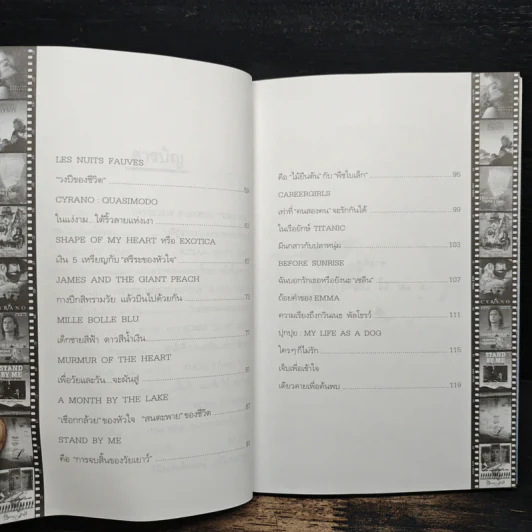 LES NUITS FAUVES
"วงปีของชีวิต"
CYRANO : QUASIMODO
ในแง่งาม...ใต้ริ้วลายแห่งเงา
SHAPE OF MY HEART หรือ EXOTICA
เงิน 5 เหรียญกับ "สรีระของหัวใจ"
JAMES AND THE GIANT PEACH
กางปีกสีทรามวัย แล้วบินไปด้วยกัน
MILLE BOLLE BLU
เด็กชายสีฟ้า ดาวสีน้ำเงิน
MURMUR OF THE HEART
เพื่อวัยและวัน...จะผันสู่
A MONTH BY THE LAKE
"เชือกกล้วย" ของหัวใจ "สนตะพาย" ของชีวิต
STAND BY ME
คือ "การจบสิ้นของวัยเยาว์"
คือ "ไม้ยืนต้น" กับ "พืชใบเล็ก" 95
CAREERGIRLS
เท่าที่ "คนสองคน" จะรักกันได้ 99
ในเรือยักษ์ TITANIC
มีนกสาวกับปลาหนุ่ม 103
BEFORE SUNRISE
ฉันบอกรักเธอหรือยังนะ "เซลีน" 107
ถ้อยคำของ EMMA
ความเรียงถึงกวินเนธ พัลโธรว์ 111
ปุกปุย : MY LIFE AS A DOG
ใครๆ ก็ไม่รัก 115
เจ็บเพื่อเข้าใจ
เดียวดายเพื่อค้นพบ 119
CYRANO
STAND BY ME